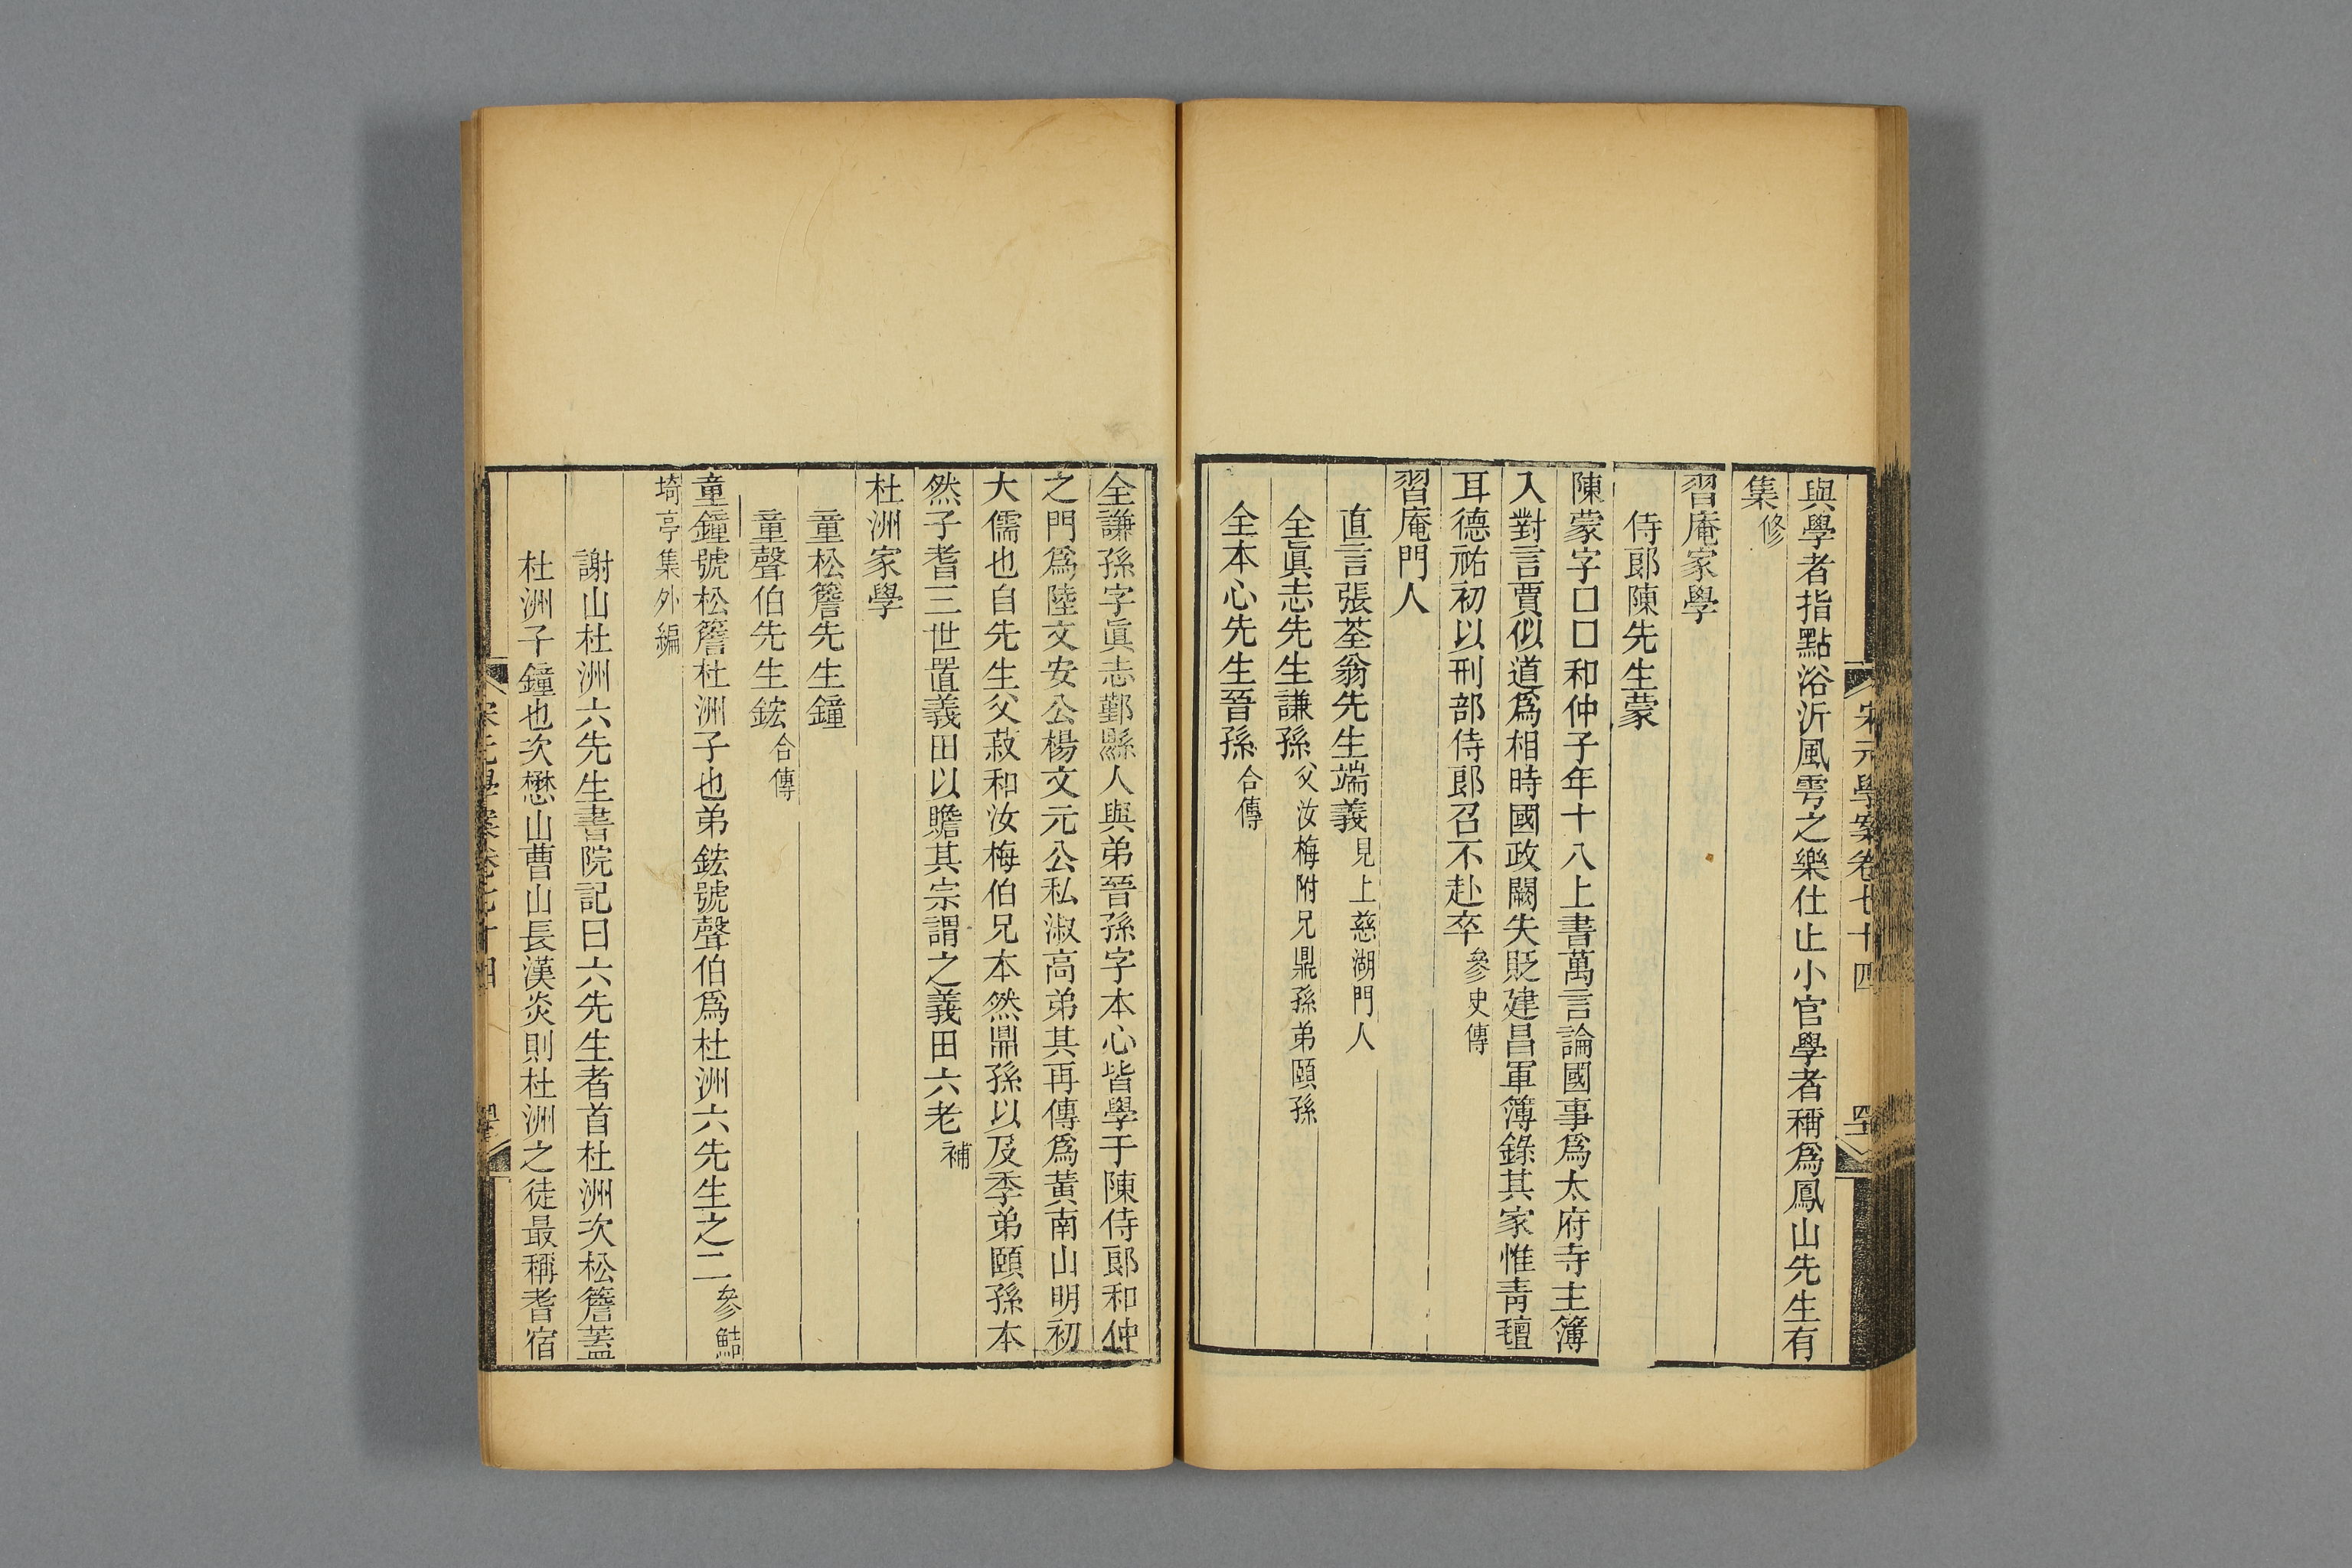 宋元學案卷七十四
與學者指點浴沂風雩之樂仕止小官學者稱爲鳳山先生有
集修
習庵家學
侍郎陳先生蒙
陳蒙字口口和仲子年十八上書萬言論國事爲太府寺主簿
入對言賈似道爲相時國政闕失貶建昌軍簿錄其家惟青氊
耳德祐初以刑部侍郎召不赴卒參史傳
習庵門人
直言張荃翁先生端義見上慈湖門人
全眞志先生謙孫父汝梅附兄鼎孫弟頤孫
全本心先生晉孫合傳
全謙孫字眞志鄞縣人與弟晉孫字本心皆學于陳侍郎和仲
之門爲陸文安公楊文元公私淑高弟其再傳爲黃南山明初
大儒也自先生父菽和汝梅伯兄本然鼎孫以及季弟頤孫本
然子耆三世置義田以贍其宗謂之義田六老補
杜洲家學
童松簷先生鐘
童聲伯先生鋐合傳
童鐘號松簷杜洲子也弟鋐號聲伯爲杜洲六先生之二參鮚
埼亭集外編
謝山杜洲六先生書院記曰六先生者首杜洲次松簷蓋
杜洲子鐘也次懋山曹山長漢炎則杜洲之徒最稱耆宿
宋元學案卷七十四